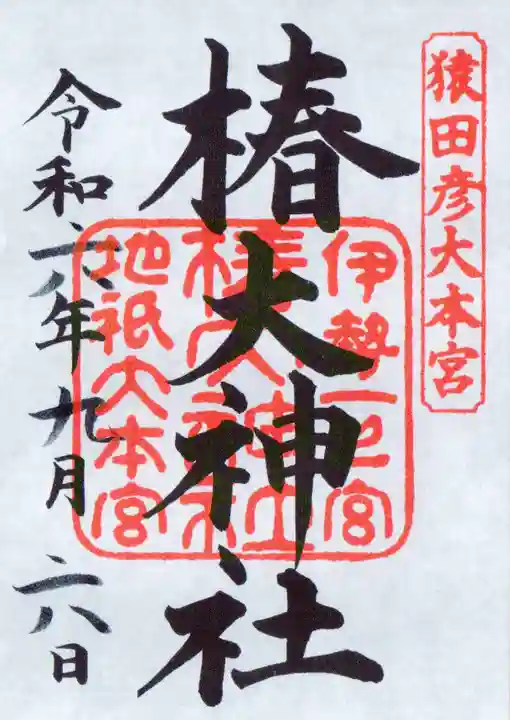 猿田彦大本宮
伊勢一之宮
椿大神社
椿大神社
地祇大本宮
令和六年九月二八日